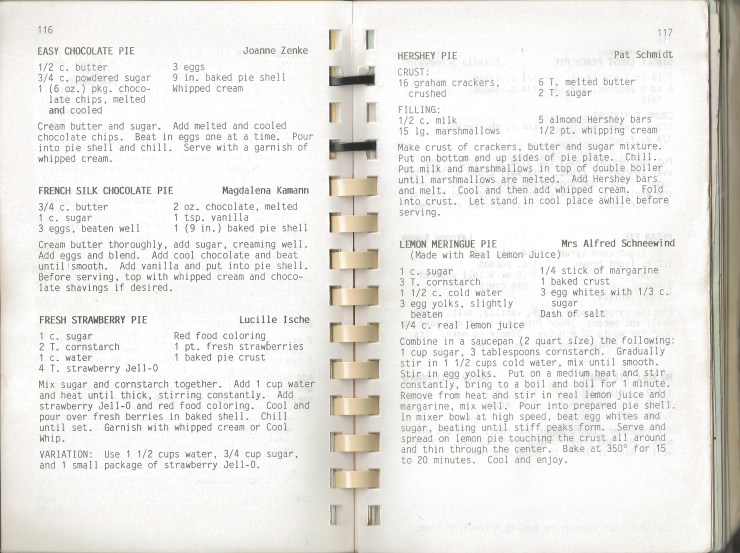 116
EASY CHOCOLATE PIE Joanne Zenke
1/2 c. butter 3 eggs
3/4 c. powdered sugar 9 in. baked pie shell
1 (6 oz.) pkg. choco- Whipped cream
late chips, melted
and cooled
Cream butter and sugar. Add melted and cooled
chocolate chips. Beat in eggs one at a time. Pour
into pie shell and chill. Serve with a garnish of
whipped cream.
FRENCH SILK CHOCOLATE PIE Magdalena Kamann
3/4 c. butter 2 oz. chocolate, melted
1 c. sugar 1 tsp. vanilla
3 eggs, beaten well 1 (9 in.) baked pie shell
Cream butter thoroughly, add sugar, creaming well.
Add eggs and blend. Add cool chocolate and beat
until smooth. Add vanilla and put into pie shell.
Before serving, top with whipped cream and choco-
late shavings if desired.
FRESH STRAWBERRY PIE Lucille Ische
1 c. sugar Red food coloring
2 T. cornstarch 1 pt. fresh strawberries
1 c. water 1 baked pie crust
4 T. strawberry Jell-O
Mix sugar and cornstarch together. Add 1 cup water
and heat until thick, stirring constantly. Add
strawberry Jell-O and red food coloring. Cool and
pour over fresh berries in baked shell. Chill
until set. Garnish with whipped cream or Cool
Whip.
VARIATION: Use 1 1/2 cups water, 3/4 cup sugar,
and 1 small package of strawberry Jell-O.
117
HERSHEY PIE Pat Schmidt
CRUST:
16 graham crackers, 6 T. melted butter
crushed 2 T. sugar
FILLING:
1/2 c. milk 5 almond Hershey bars
15 lg. marshmallows 1/2 pt. whipping cream
Make crust of crackers, butter and sugar mixture.
Put on bottom and up sides of pie plate. Chill.
Put milk and marshmallows in top of double boiler
until marshmallows are melted. Add Hershey bars
and melt. Cool and then add whipped cream. Fold
into crust. Let stand in cool place awhile before
serving.
LEMON MERINGUE PIE Mrs Alfred Schneewind
(Made with Real Lemon Juice)
1 c. sugar 1/4 stick of margarine
3 T. cornstarch 1 baked crust
1 1/2 c. cold water 3 egg whites with 1/3 c.
3 egg yolks, slightly sugar
beaten Dash of salt
1/4 c. real lemon juice
Combine in a saucepan (2 quart size) the following:
1 cup sugar, 3 tablespoons cornstarch. Gradually
stir in 1 1/2 cups cold water, mix until smooth.
Stir in egg yolks. Put on a medium heat and stir
constantly, bring to a boil and boil for 1 minute.
Remove from heat and stir in real lemon juice and
margarine, mix well. Pour into prepared pie shell.
In mixer bowl at high speed, beat egg whites and
sugar, beating until stiff peaks form. Serve and
spread on lemon pie touching the crust all around
and thin through the center. Bake at 350° for 15
to 20 minutes. Cool and enjoy.